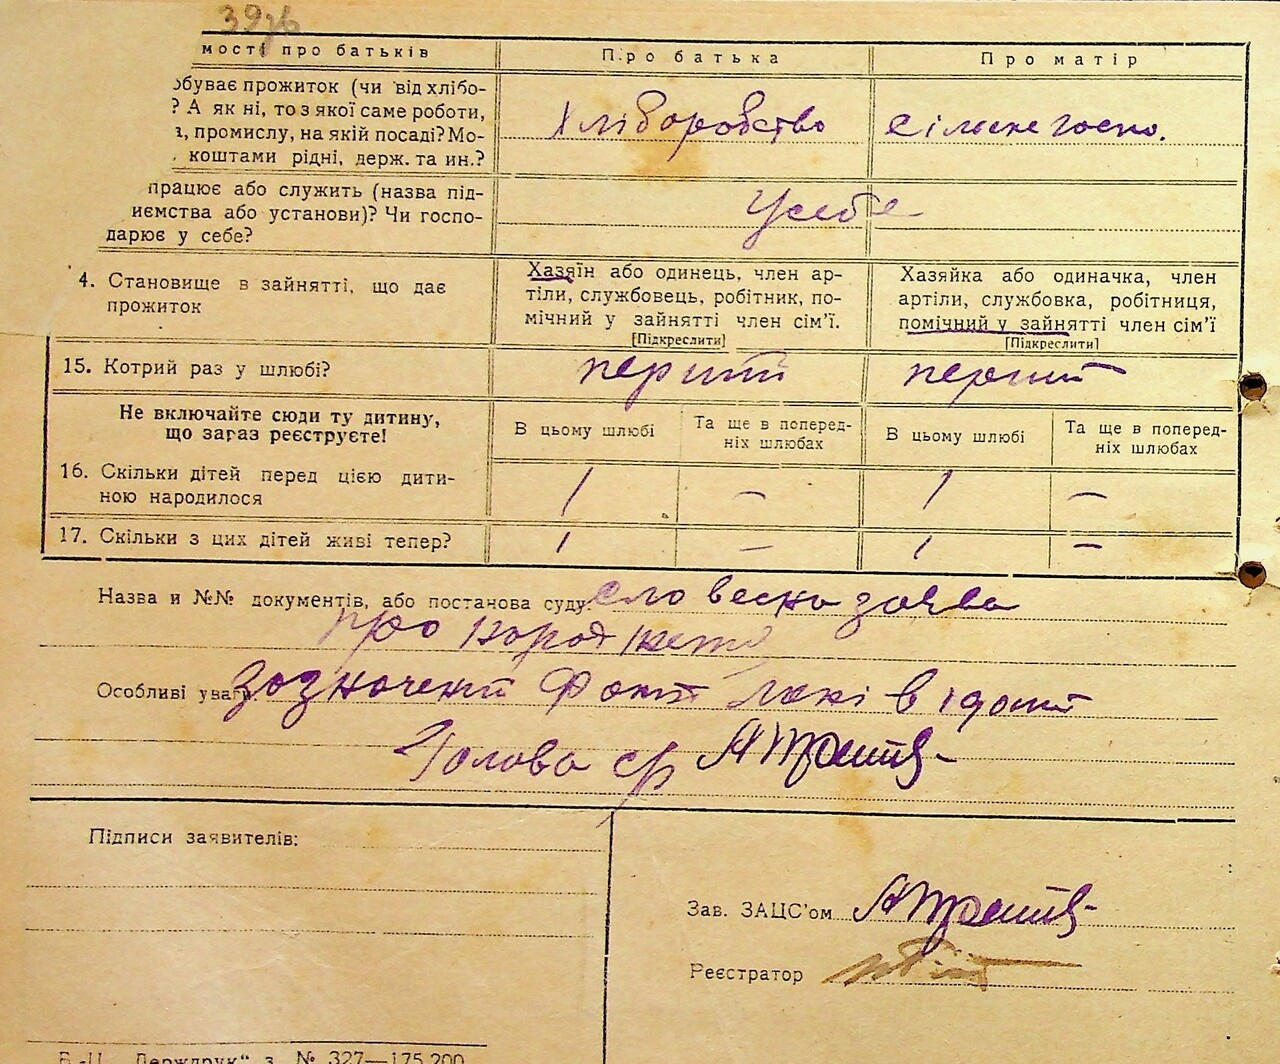 39зв
мості про батьків
Про батька
Про матір
обуває прожиток (чи від хлібо-
? А як ні, то з якої саме роботи,
, промислу, на якій посаді? Мо-
коштами рідні, держ. та ин.?
Хліборобство
сільське госпо.
працює або служить (назва під-
иємства або установи)? Чи госпо-
дарює у себе?
У себе
4. Становище в зайнятті, що дає
прожиток
Хазяїн або одинець, член ар-
тіли, службовець, робітник, по-
мічний у зайнятті член сім'ї.
[Підкреслити]
Хазяйка або одиначка, член
артіли, службовка, робітниця,
помічний у зайнятті член сім'ї
[Підкреслити]
15. Котрий раз у шлюбі?
перший
перший
Не включайте сюди ту дитину,
що зараз реєструєте!
В цьому шлюбі
Та ще в поперед-
ніх шлюбах
В цьому шлюбі
Та ще в поперед-
ніх шлюбах
16. Скільки дітей перед цією дити-
ною народилося
1
—
1
—
17. Скільки з цих дітей живі тепер?
1
—
1
—
Назва и №№ документів, або постанова суду словесна заява
про народження
Особливі уваги зазначений факт
Голова ср
Підписи заявителів:
Зав. ЗАЦС'ом
Реєстратор
В.-Ц. „Держдрук" з. № 327—175.200